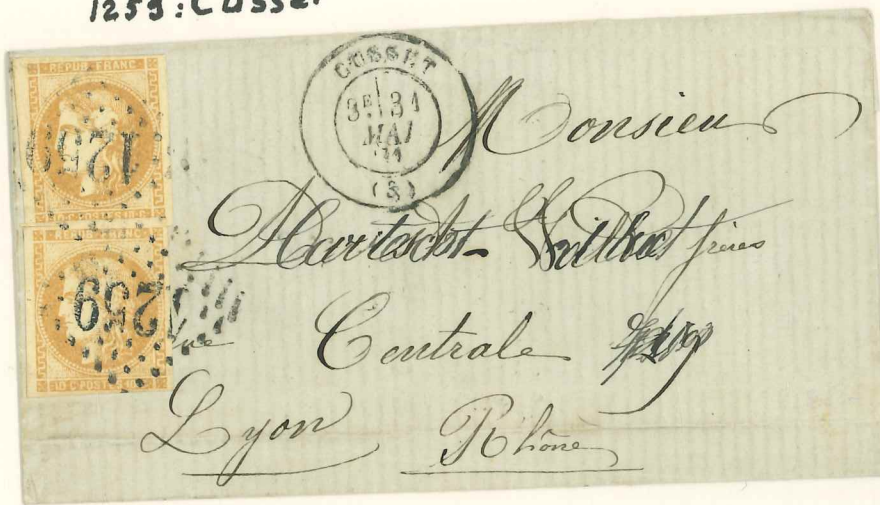 1259: Cusset
REPUB. FRANC.
1259
10 C. POSTES 10 C.
REPUB. FRANC.
1259
10 C. POST
CUSSET
3E 31
MAI
71
(3)
Monsieur
frères
Rue Centrale
Lyon Rhône